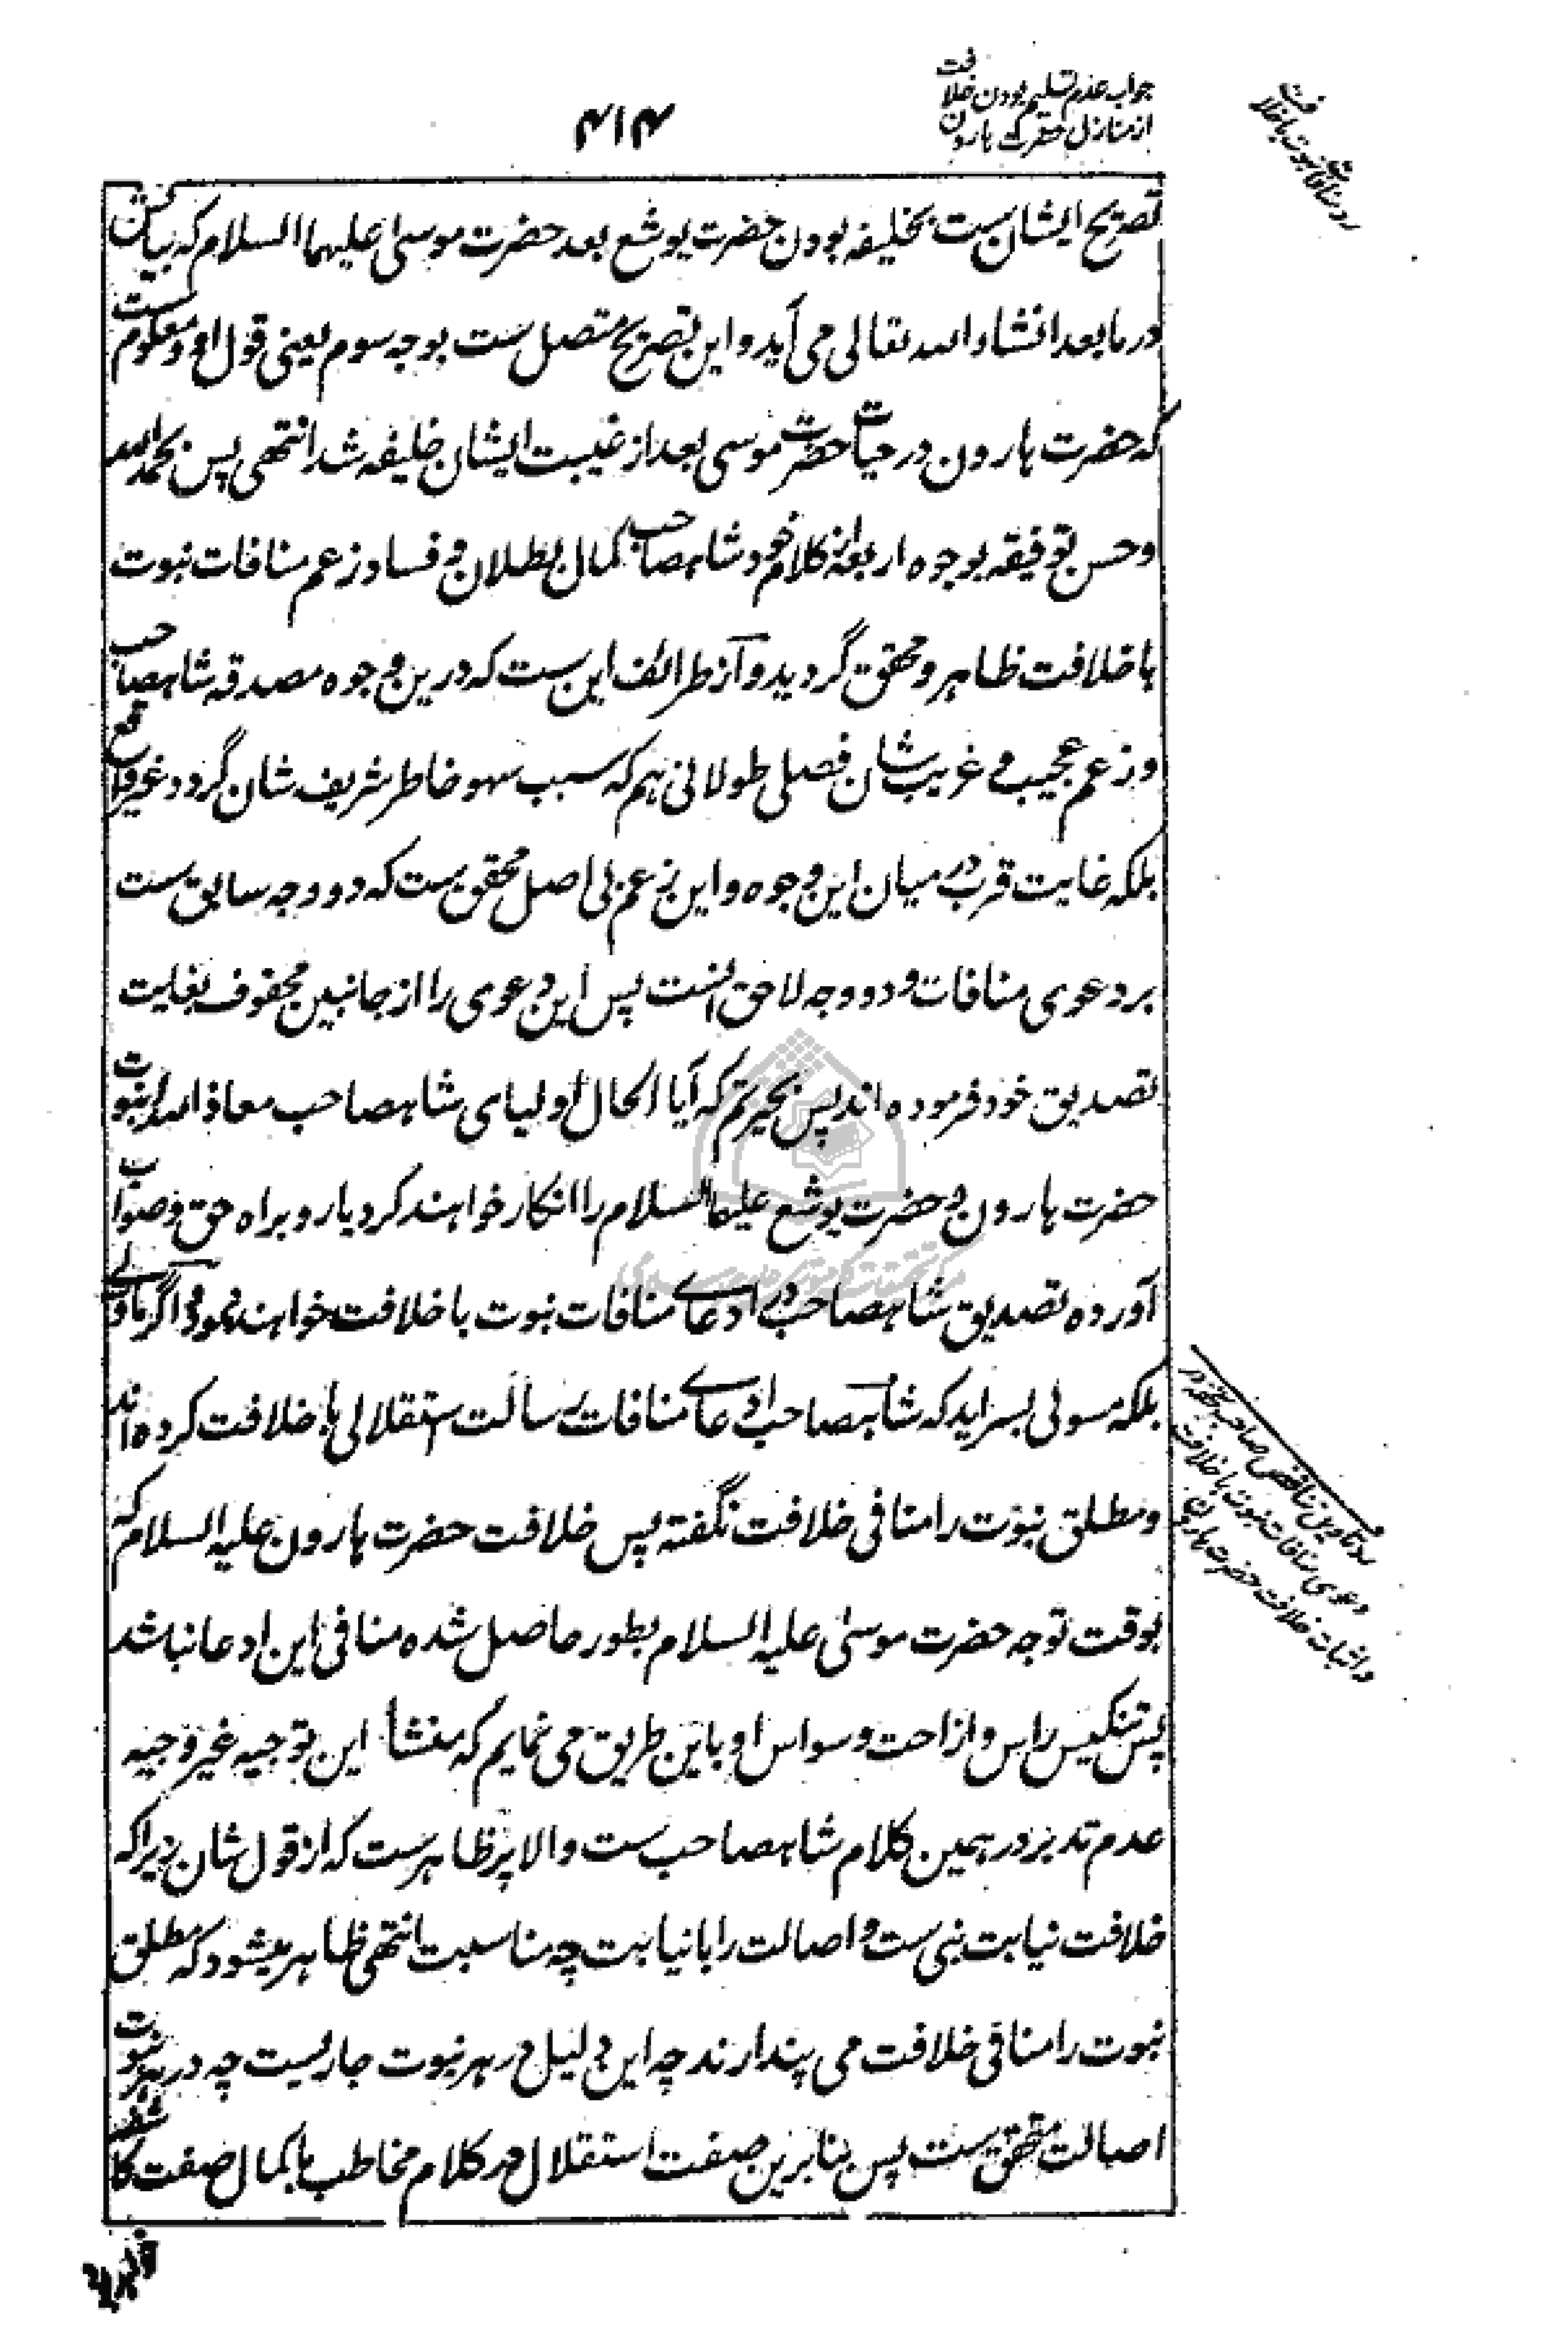 جواب عدم تسلیم بودن خلافت
از منازل حضرت هارون
۴۱۴
رد منافات نبوت با خلافت
تصریح ایشان ست بخلیفه بودن حضرت یوشع بعد حضرت موسی علیهما السلام که بیانش
در ما بعد انشاء الله تعالی می آید و این تصریح متصل ست بوجه سوم یعنی قول او و معلوم ست
که حضرت هارون در حیات حضرت موسی بعد از غیبت ایشان خلیفه شد انتهی پس بحمد الله
و حسن توفیقه بوجوه اربعه از کلام خود شاهصاحب کمال بطلان و فساد زعم منافات نبوت
با خلافت ظاهر و محقق گردید و از طرائف این ست که درین وجوه مصدقه شاهصاحب
و زعم عجیب و غریب شان فصلی طولانی هم که سبب سهو خاطر شریف شان گردد غیر واقع
بلکه غایت قرب در میان این وجوه و این زعم بی اصل محقق ست که دو وجه سابق ست
بر دعوی منافات و دو وجه لاحق انست پس این دعوی را از جانبین محفوف بغایت
تصدیق خود فرموده اند پس بحیرتم که آیا الحال اولیای شاهصاحب معاذ الله نبوت
حضرت هارون و حضرت یوشع علیهما السلام را انکار خواهند کرد یا رو براه حق و صواب
آورده تصدیق شاهصاحب در ادعای منافات نبوت با خلافت خواهند نمود و اگر ماولی
بلکه مسولی بسراید که شاهصاحب ادعای منافات رسالت استقلالی با خلافت کرده اند
و مطلق نبوت را منافی خلافت نگفته پس خلافت حضرت هارون علیه السلام که
بوقت توجه حضرت موسی علیه السلام بطور حاصل شده منافی این ادعا نباشد
پس تنکیس راس و ازاحت وسواس او باین طریق می نمایم که منشأ این توجیه غیر وجیه
عدم تدبر در همین کلام شاهصاحب ست والا پر ظاهر ست که از قول شان زیرا که
خلافت نیابت نبی ست و اصالت را با نیابت چه مناسبت انتهی ظاهر میشود که مطلق
نبوت را منافی خلافت می پندارند چه این دلیل در هر نبوت جاریست چه در هر نبوت
اصالت متحقق ست پس بنابرین صفت استقلال در کلام مخاطب با کمال صفت کاشفه
رد تاویل تناقض صاحب تحفه در
دعوی منافات نبوت با خلافت
و اثبات خلافت حضرت هارون